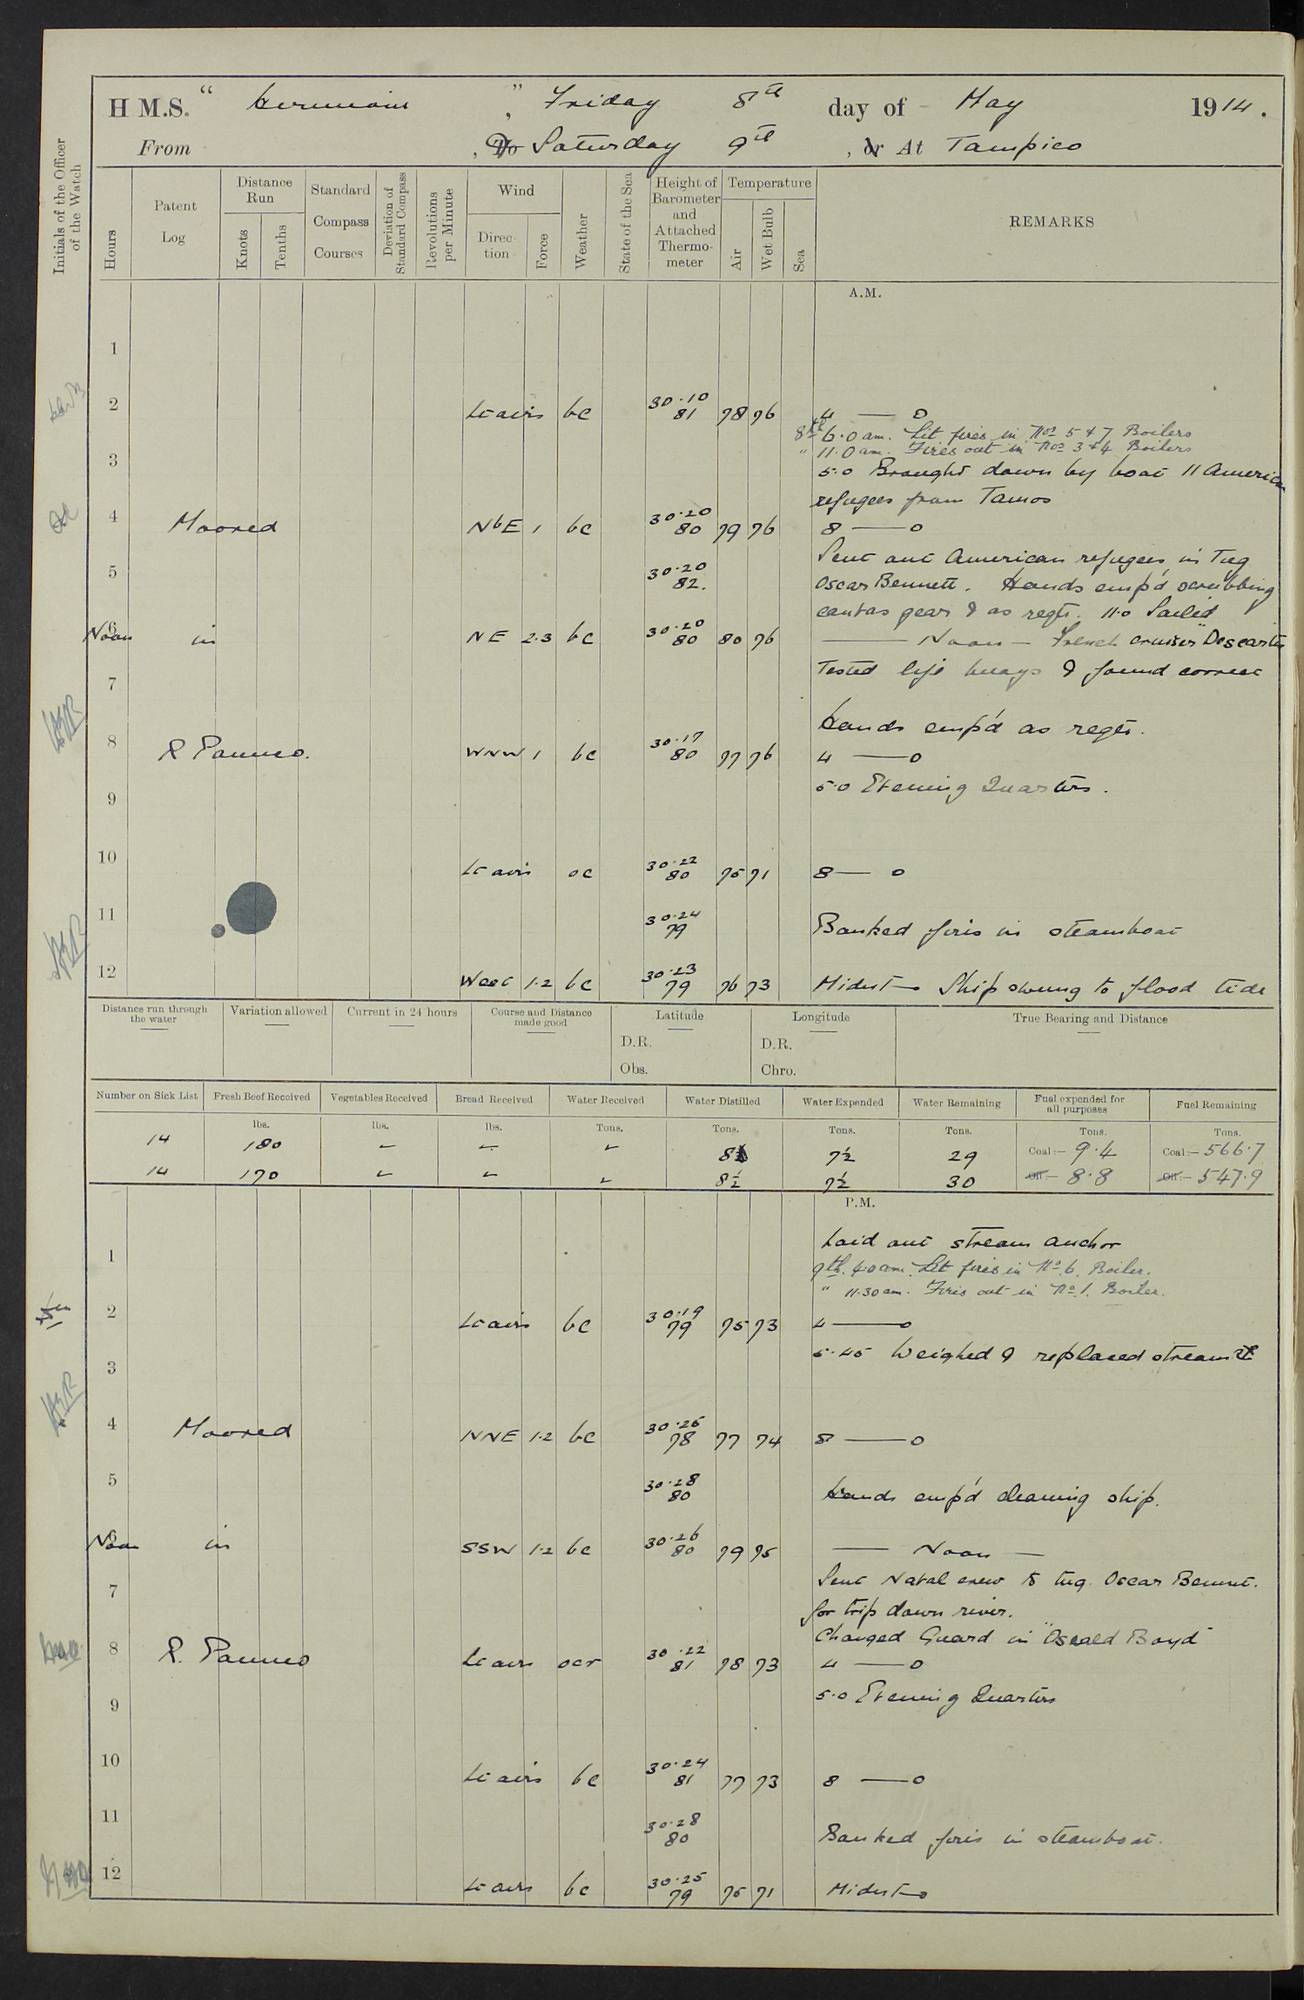 H M.S. " Hermione ", Friday 8th day of May 1914.
From , To Saturday 9th , or At Tampico
Initials of the Officer of the Watch
Hours
Patent Log
Distance Run
Knots
Tenths
Standard Compass Courses
Deviation of Standard Compass
Revolutions per Minute
Wind
Direction
Force
Weather
State of the Sea
Height of Barometer and Attached Thermometer
Temperature
Air
Wet Bulb
Sea
REMARKS
A.M.
1
2 Lt airs bc 30.10 81 78 76 4 — 0
8th 6.0 am. Lit fires in Nos 5 & 7 Boilers
" 11.0 am. Fires out in Nos 3 & 4 Boilers
3 5.0 Brought down by boat 11 American
refugees from Tamos
4 Moored NbE 1 bc 30.20 80 79 76 8 — 0
Sent out American refugees in Tug
5 30.20 82. Oscar Bennett. Hands emp'd scrubbing
canvas gear & as reqte. 11.0 Sailed
6 Noon in NE 2.3 bc 30.20 80 80 76 — Noon — French cruiser "Descartes
7 Tested life buoys & found correct
Hands emp'd as reqte.
8 R Panuco. WNW 1 bc 30.17 80 77 76 4 — 0
9 5.0 Evening Quarters.
10 Lt airs oc 30.22 80 75 71 8 — 0
11 30.24 79 Banked fires in steamboat
12 West 1.2 bc 30.23 79 76 73 Midnt Ship swung to flood tide
Distance run through the water
Variation allowed
Current in 24 hours
Course and Distance made good
Latitude
D.R.
Obs.
Longitude
D.R.
Chro.
True Bearing and Distance
Number on Sick List
Fresh Beef Received
Vegetables Received
Bread Received
Water Received
Water Distilled
Water Expended
Water Remaining
Fuel expended for all purposes
Fuel Remaining
lbs. lbs. lbs. Tons. Tons. Tons. Tons. Tons. Tons.
14 180 – – – 8 7½ 29 Coal:– 9.4 Coal:– 566.7
14 170 – – – 8½ 7½ 30 Oil:– 8.8 Oil:– 547.9
P.M.
Laid out stream anchor
1 9th. 4.0 am. Lit fires in No. 6. Boiler.
" 11.30 am. Fires out in No. 1. Boiler.
2 Lt airs bc 30.19 79 75 73 4 — 0
3 5.45 Weighed & replaced stream
4 Moored NNE 1.2 bc 30.26 78 77 74 8 — 0
5 30.28 80 Hands emp'd cleaning ship.
6 Noon in SSW 1.2 bc 30.26 80 79 75 — Noon —
7 Sent Naval crew to tug Oscar Bennet.
for trip down river.
Changed Guard in "Oswald Boyd"
8 R. Panuco Lt airs ocr 30.22 81 78 73 4 — 0
9 5.0 Evening Quarters
10 Lt airs bc 30.24 81 77 73 8 — 0
11 30.28 80 Banked fires in steamboat.
12 Lt airs bc 30.25 79 75 71 Midnt